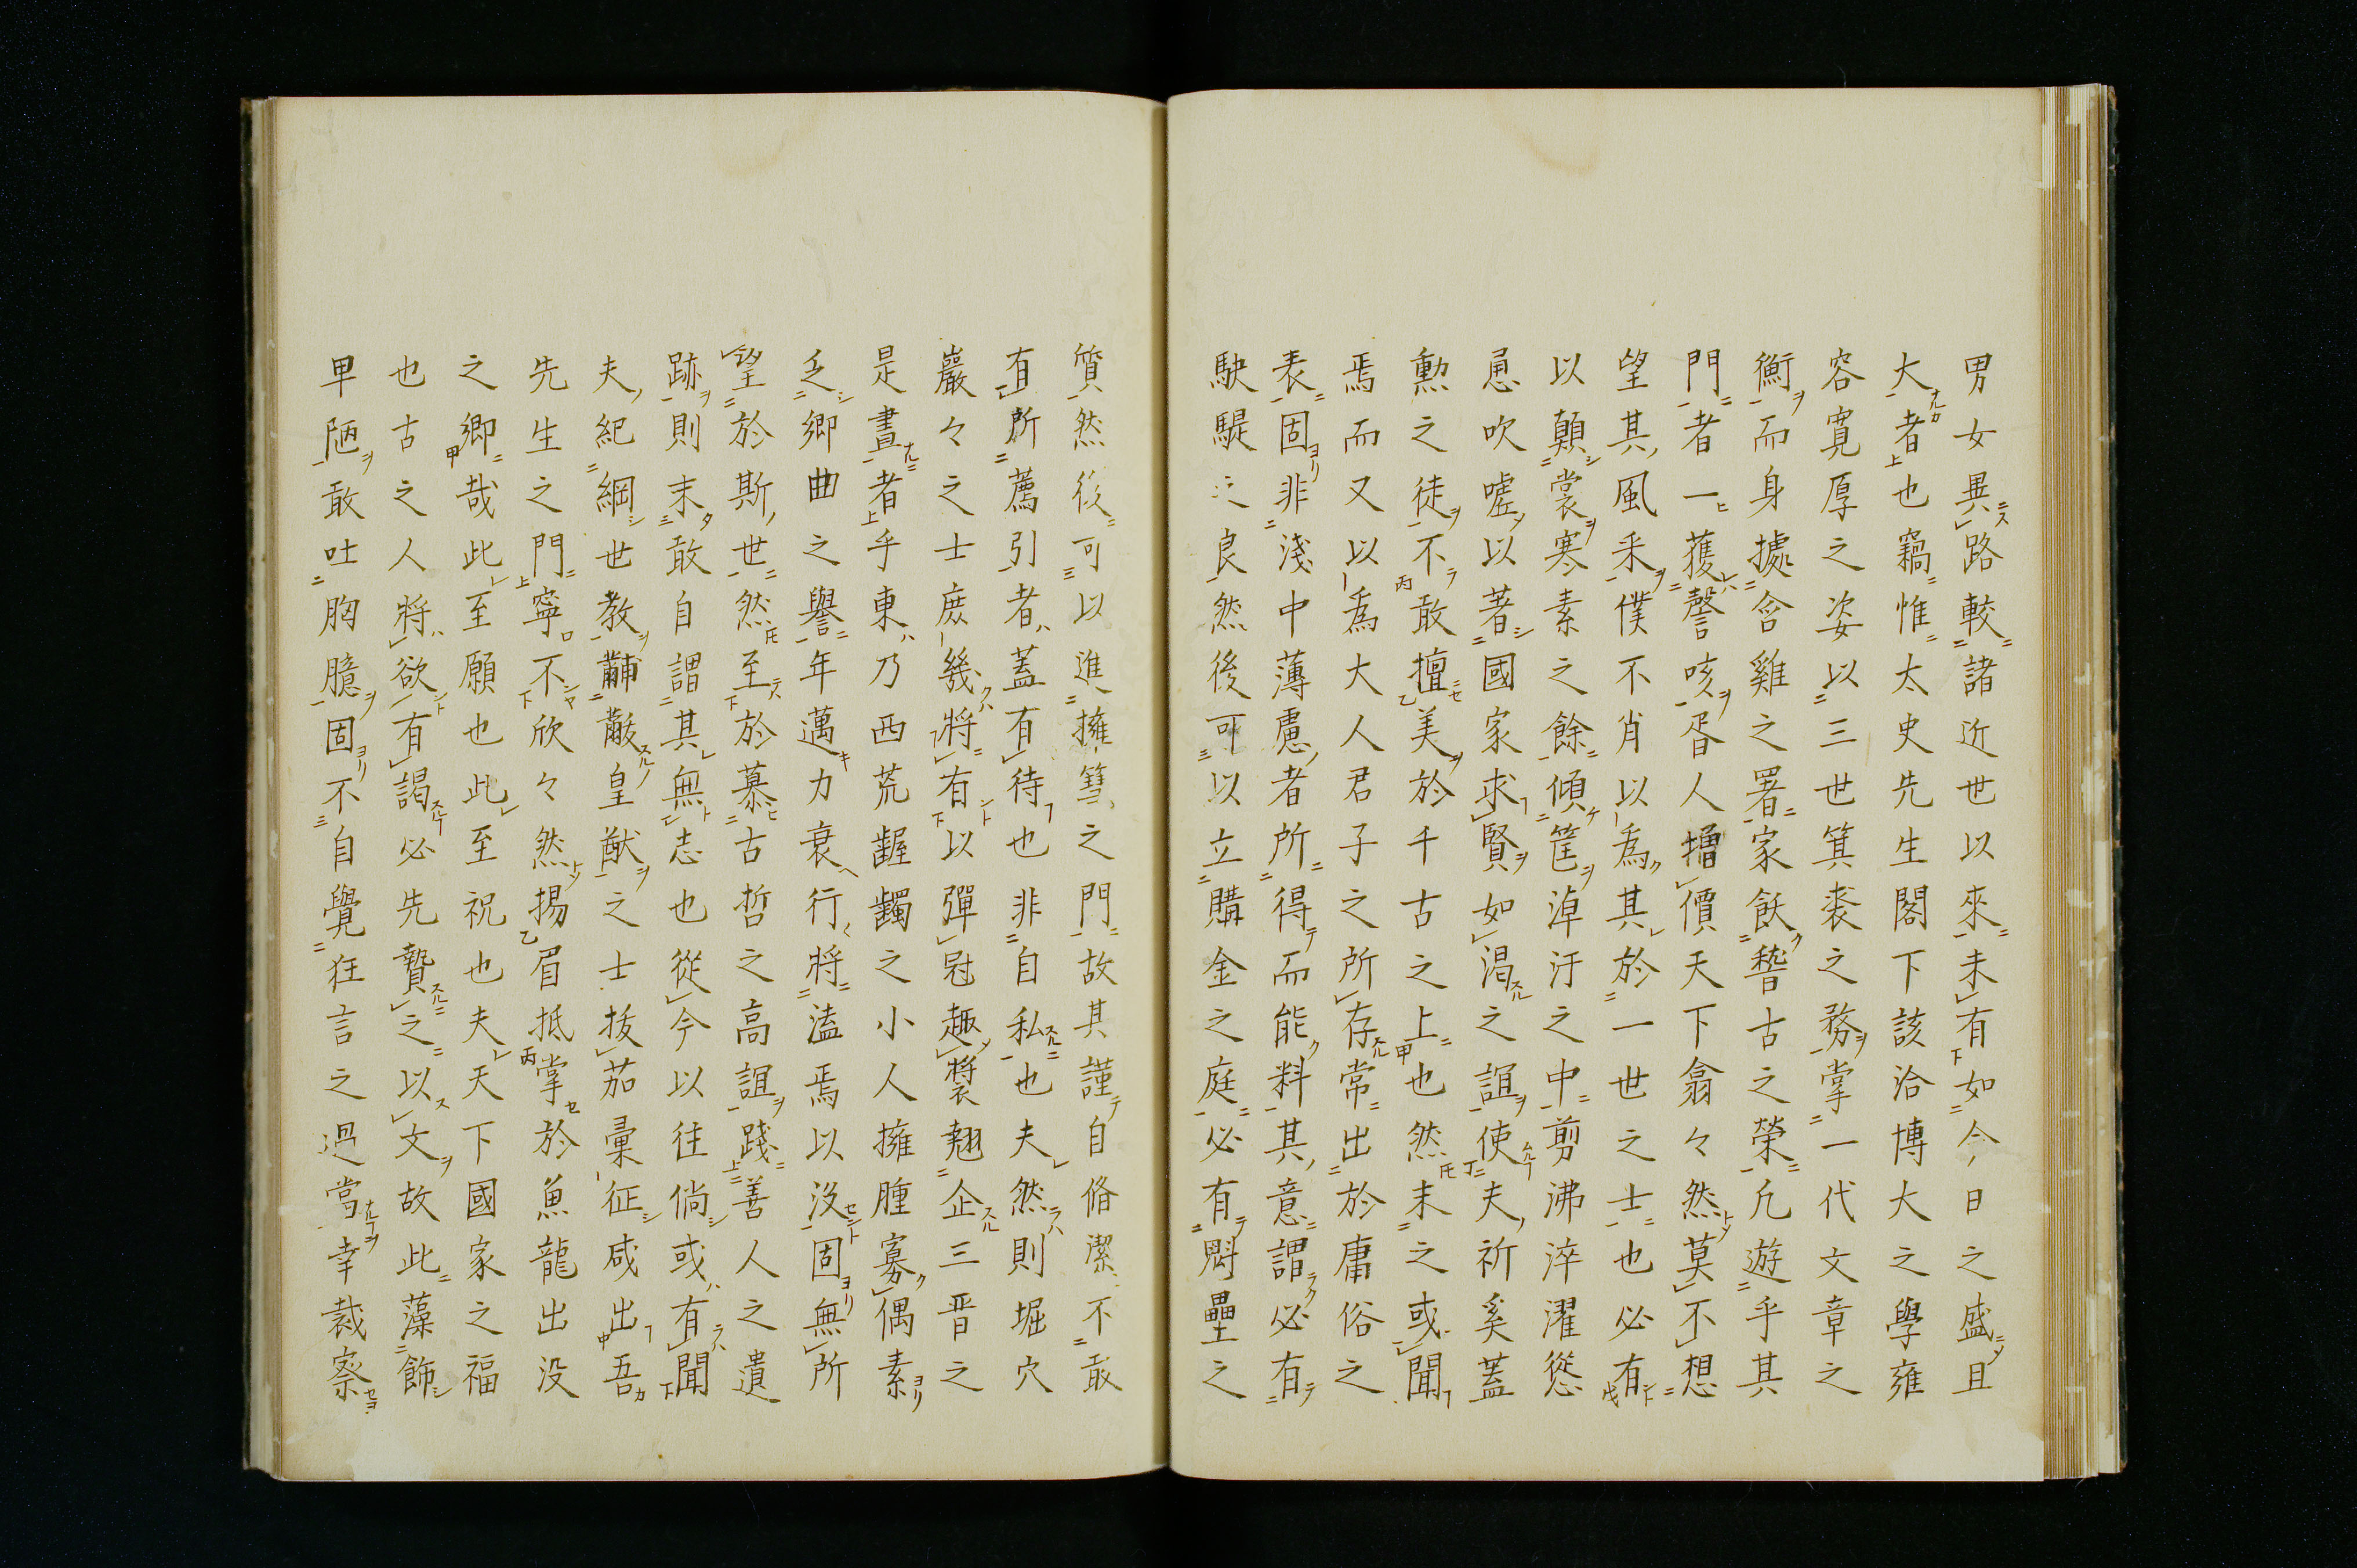 男女異路較諸近世以來未有如今日之盛且
大者也竊惟太史先生閣下該洽博大之學雍
容寬厚之姿以三世箕裘之務掌一代文章之
衡而身據含雞之署家飫稽古之榮凢遊乎其
門者一獲謦咳胥人增價天下翕々然莫不想
望其風釆僕不肖以爲其於一世之士也必有
以顛裳寒素之餘傾筐淖汙之中剪沸淬濯慫
慂吹嘘以著國家求賢如渇之誼使夫祈奚蓋
勲之徒不敢擅美於千古之上也然未之或聞
焉而又以爲大人君子之所存常出於庸俗之
表固非淺中薄慮者所得而能料其意謂必有
駃騠之良然後可以立購金之庭必有閎壘之
質然後可以進擁篲之門故其謹自脩潔不敢
有所薦引者蓋有待也非自私也夫然則堀穴
巖々之士庶幾將有以彈冠趣裝翹企三晋之
是晝者乎東乃西荒齷齪之小人擁腫寡偶素
乏鄉曲之譽年邁力衰行將溘焉以沒固無所
望於斯世然至於慕古哲之高誼踐善人之遺
跡則末敢自謂其無志也從今以往倘或有聞
夫紀綱世教黼黻皇猷之士拔茄彙征咸出吾
先生之門寧不欣々然揚眉抵掌於魚龍出没
之鄉哉此至願也此至祝也夫天下國家之福
也古之人將欲有謁必先贄之以文故此藻飾
卑陋敢吐胸臆固不自覺狂言之過當幸裁察